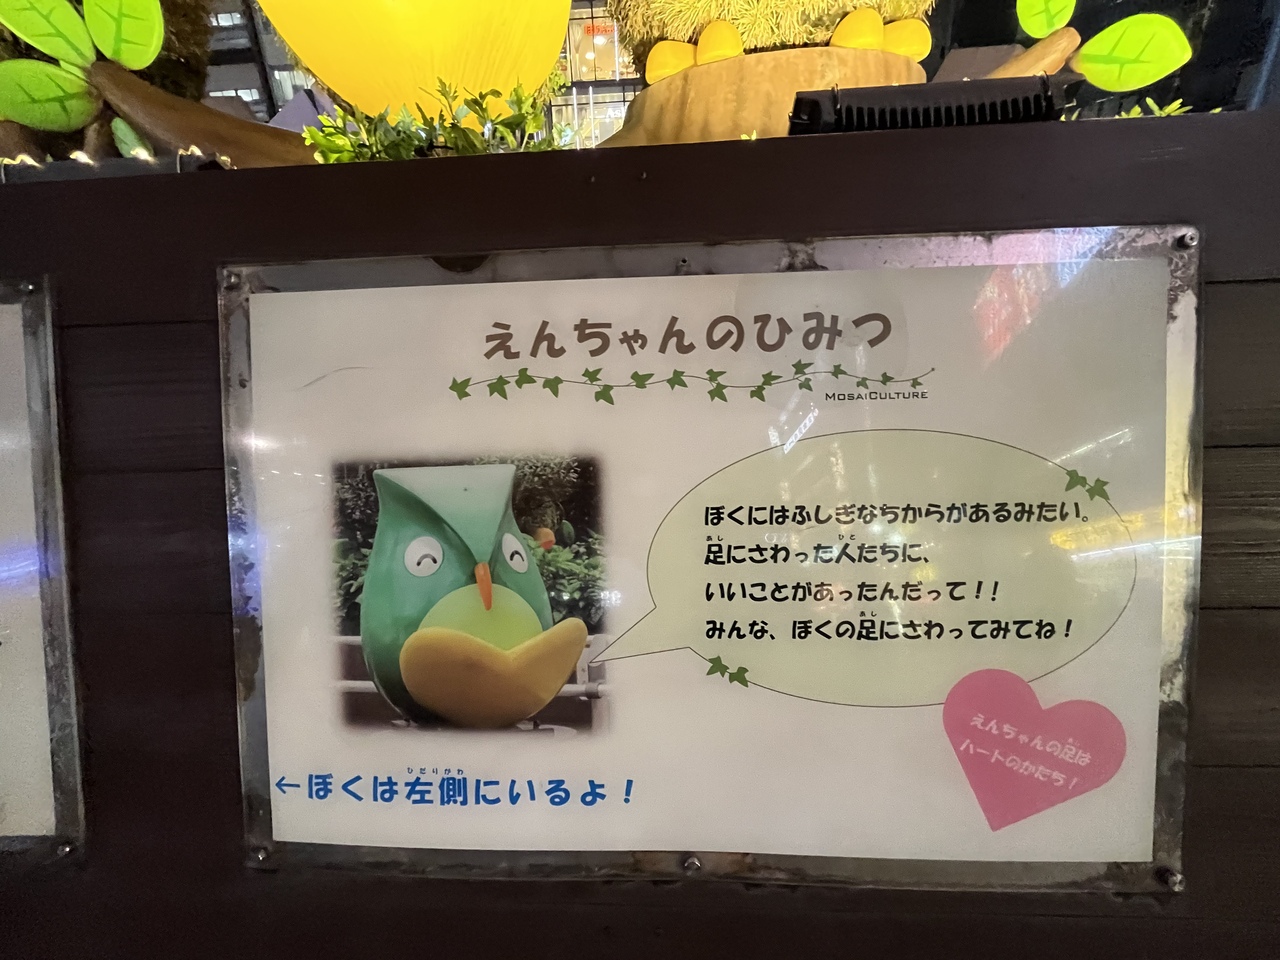 えんちゃんのひみつ
MOSAICULTURE
ぼくにはふしぎなちからがあるみたい。
足にさわった人たちに、
いいことがあったんだって！！
みんな、ぼくの足にさわってみてね！
えんちゃんの足は
ハートのかたち！
←ぼくは左側にいるよ！